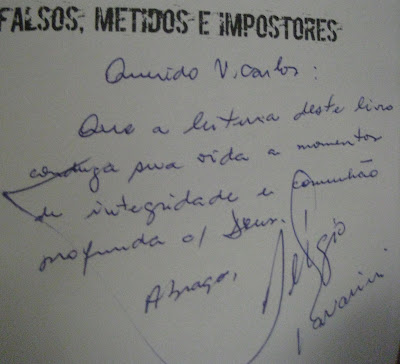 FALSOS, METIDOS E IMPOSTORES
Querido V. Carlos:
Que a leitura deste livro
conduza sua vida a momentos
de integridade e comunhão
profunda c/ Deus.
Abraço,
Sérgio
Pavarini